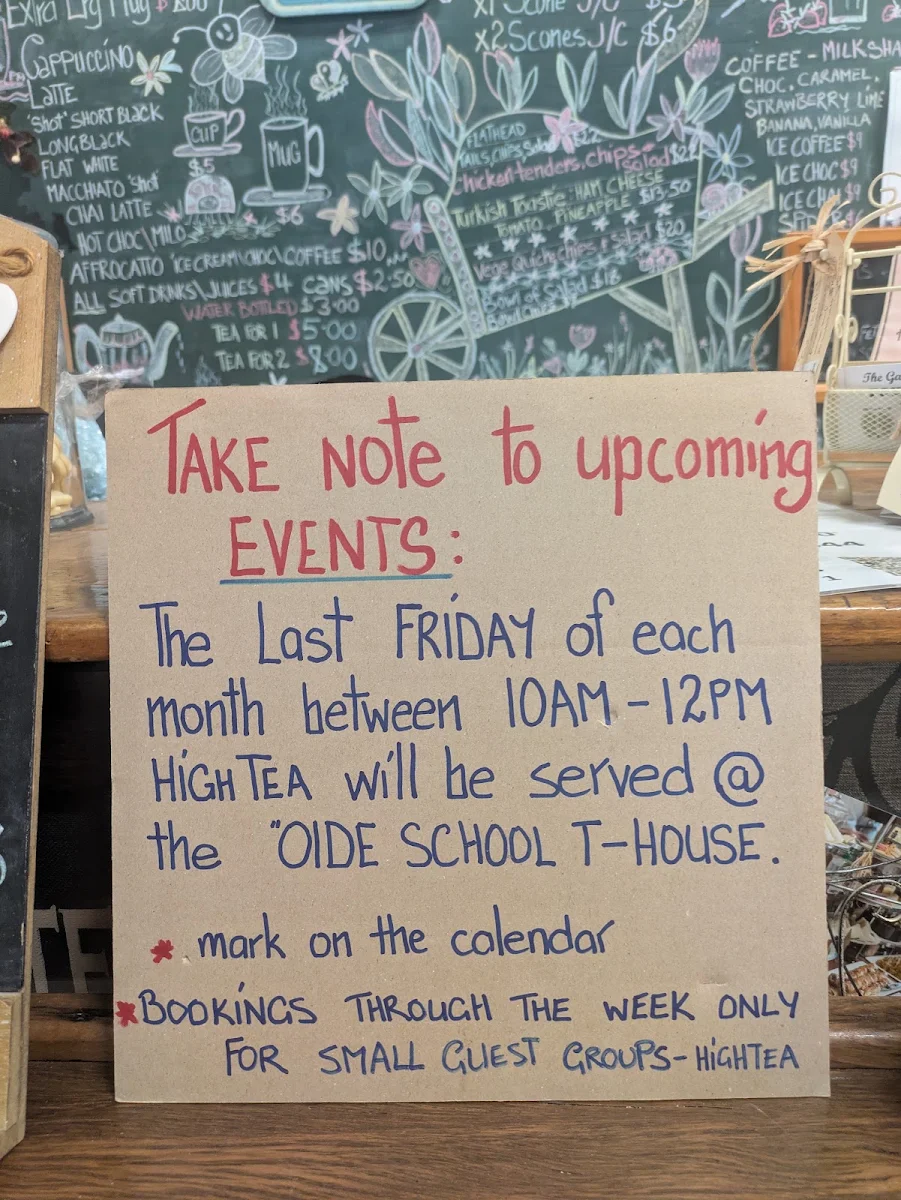 Extra Lrg Mug $
CAPPUCCINO
LATTE
'Shot' SHORT BLACK
LONGBLACK
FLAT WHITE
MACCHIATO 'Shot'
CHAI LATTE
HOT CHOC\MILO
CUP
$5
MUG
$6
AFFROCATTO 'ICECREAM\CHOC\COFFEE $10
ALL SOFT DRINKS\JUICES $4 CANS $2.50
WATER BOTTLED $3.00
TEA FOR 1 $5.00
TEA FOR 2 $8.00
x1 Scone J/C
x2 Scones J/C $6
FLATHEAD
Chicken tenders, chips
Salad
Turkish Toastie: HAM CHEESE
TOMATO, PINEAPPLE $13.50
Vege quich, chips & salad $20
Bowl of Salad $18
Bowl
COFFEE - MILKSHA
CHOC, CARAMEL,
STRAWBERRY LIME
BANANA, VANILLA
ICE COFFEE $9
ICE CHOC $9
ICE CHAI $9
The Ga
TAKE Note to upcoming
EVENTS:
The Last FRIDAY of each
month between 10AM - 12PM
HIGH TEA will be served @
the "OlDE SCHOOL T-HOUSE.
* mark on the calendar
* BOOKINGS THROUGH THE WEEK ONLY
FOR SMALL GUEST GROUPS - HIGHTEA